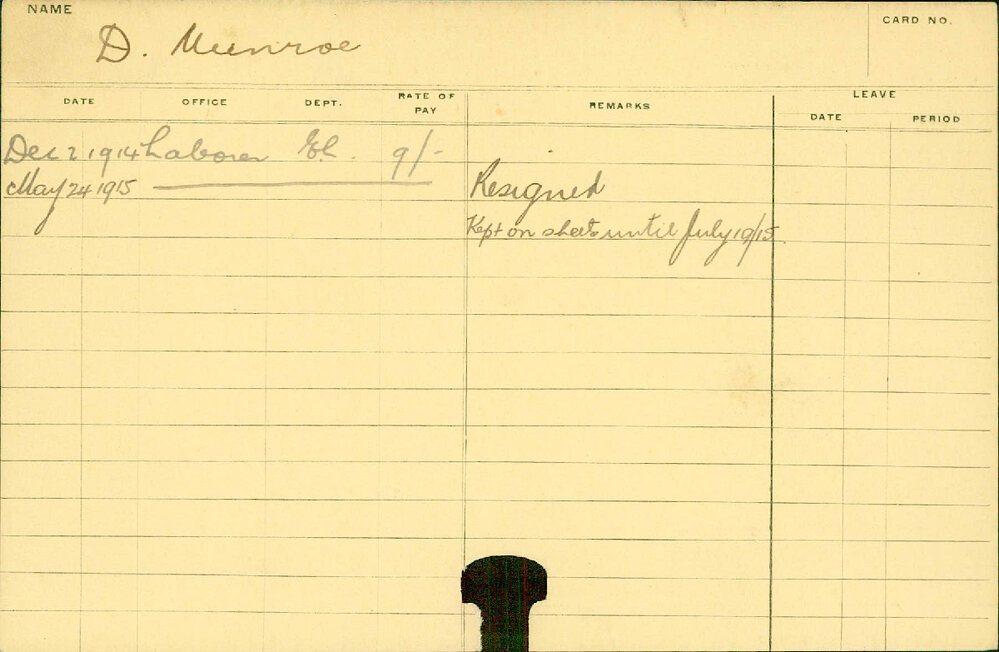 NAME
CARD NO.
D. Munroe
DATE OFFICE DEPT. RATE OF PAY REMARKS LEAVE
DATE PERIOD
Dec 2 1914 Laborer 9/-
May 24 1915 Resigned
Kept on sheets until July 19/15